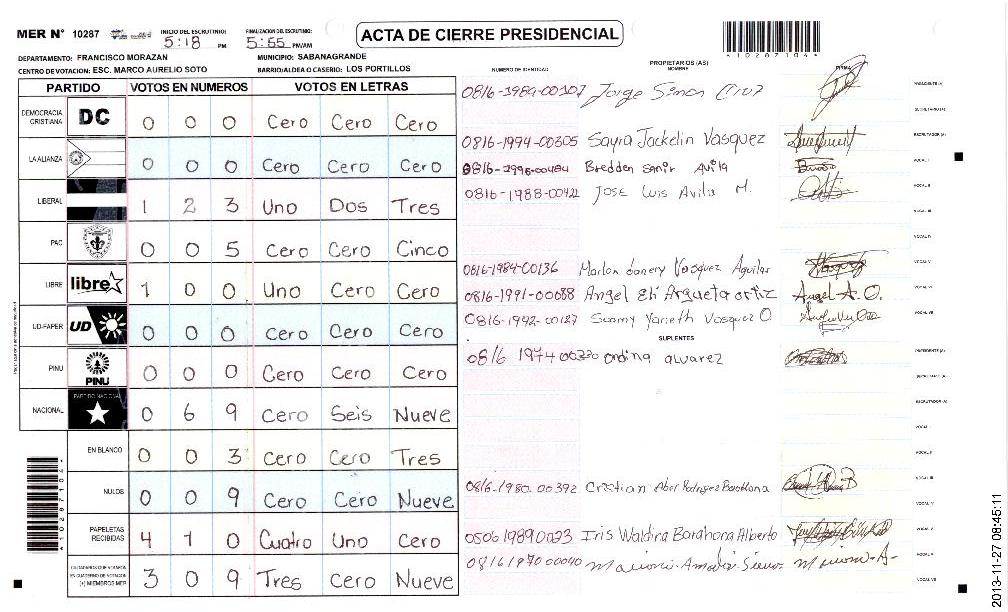 MER N° 10287 INICIO DEL ESCRUTINIO: 5:18 PM FINALIZACION DEL ESCRUTINIO: 5:55 PM/AM
ACTA DE CIERRE PRESIDENCIAL
*10287104*
DEPARTAMENTO: FRANCISCO MORAZAN MUNICIPIO: SABANAGRANDE
CENTRO DE VOTACION: ESC. MARCO AURELIO SOTO BARRIO/ALDEA O CASERIO: LOS PORTILLOS
PARTIDO VOTOS EN NUMEROS VOTOS EN LETRAS
DEMOCRACIA CRISTIANA DC 0 0 0 Cero Cero Cero
LA ALIANZA 0 0 0 Cero Cero Cero
LIBERAL 1 2 3 Uno Dos Tres
PAC 0 0 5 Cero Cero Cinco
LIBRE libre 1 0 0 Uno Cero Cero
UD-FAPER UD 0 0 0 Cero Cero Cero
PINU PINU 0 0 0 Cero Cero Cero
NACIONAL PARTIDO NACIONAL 0 6 9 Cero Seis Nueve
EN BLANCO 0 0 3 Cero Cero Tres
NULOS 0 0 9 Cero Cero Nueve
PAPELETAS RECIBIDAS 4 1 0 Cuatro Uno Cero
CIUDADANOS QUE VOTARON EN CUADERNO DE VOTACION (+) MIEMBROS MER 3 0 9 Tres Cero Nueve
NUMERO DE IDENTIDAD PROPIETARIOS (AS) NOMBRE FIRMA
0816-1989-00307 Jorge Simon Cruz PRESIDENTE (A)
SECRETARIO (A)
0816-1994-00305 Sayra Jackelin Vasquez ESCRUTADOR (A)
0816-1998-00484 Bredden Sanir Avila VOCAL I
0816-1988-00421 Jose Luis Avila M. VOCAL II
VOCAL III
VOCAL IV
0816-1984-00136 Marlon Vasquez Aguilar VOCAL V
0816-1991-00088 Angel Eli Argueta ortiz Angel A. O. VOCAL VI
0816-1992-00127 Suamy Yarieth Vasquez O VOCAL VII
SUPLENTES
0816 1974 00330 ondina alvarez PRESIDENTE (A)
SECRETARIO (A)
ESCRUTADOR (A)
VOCAL I
VOCAL II
0816-1980 00392 Cristian Abel Rodriguez Barahona
0506 1989 0023 Iris Waldina Barahona Alberto VOCAL V
0816 1970 00040
*10287104*
2013-11-27 08:45:11